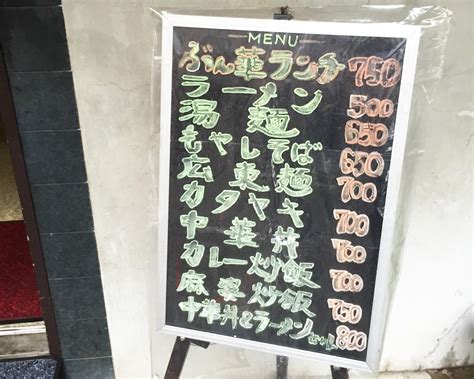 MENU
ぶん華ランチ 750
ラーメン 500
湯麺 650
もやしそば 650
広東麺 700
カタヤキ 700
中華丼 700
カレー炒飯 700
麻婆炒飯 750
中華丼&ラーメンセット 800